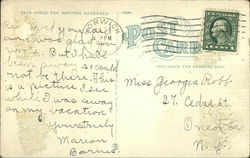 THIS SPACE FOR WRITING MESSAGES
NORWICH
POST CARD
THIS SPACE FOR ADDRESS ONLY
and was glad
word. But I have
been away so could
not be there. This
is a picture I
while I was away
on my vacation.
Yours truly
Marion
Barnes.
Miss Georgia Robb
27 Cedar St.
Oneonta
N.Y.